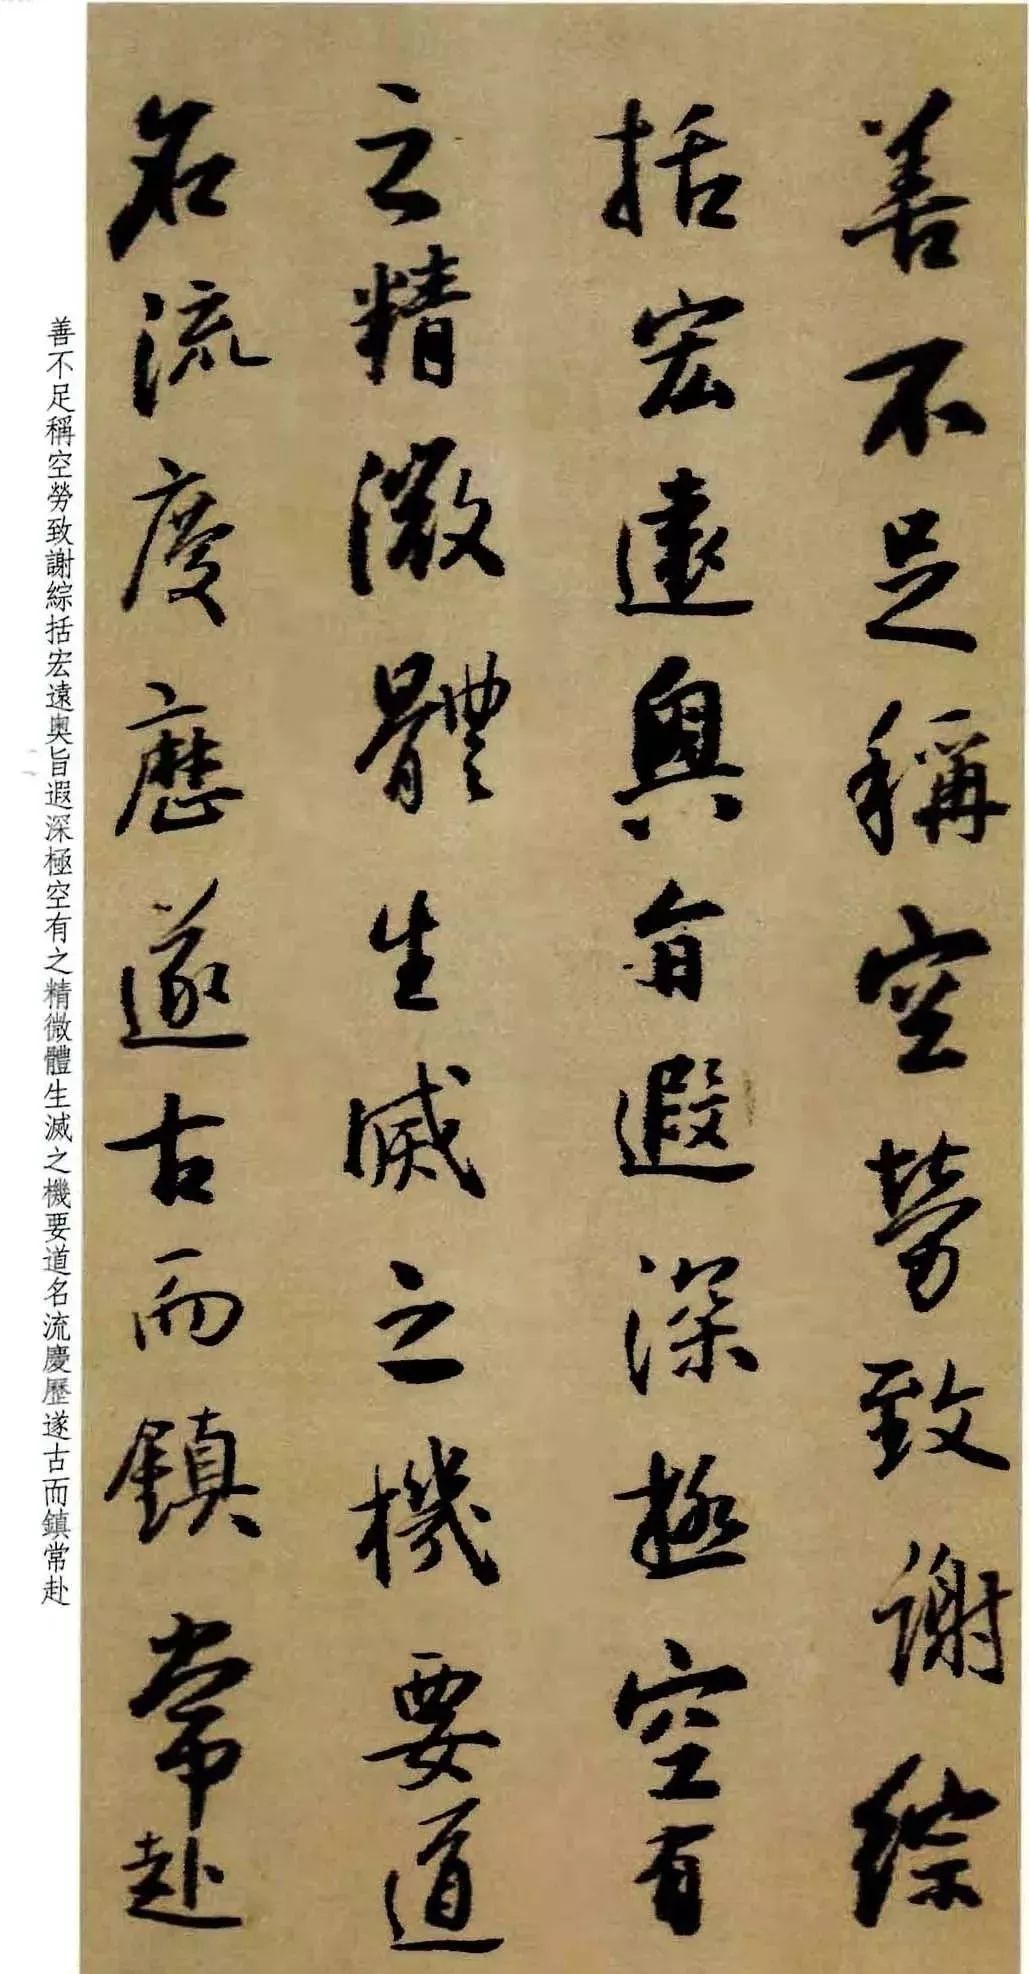 善不足稱空勞致謝綜
括宏遠奧旨遐深極空有
之精微體生滅之機要道
名流慶歷遂古而鎮常赴
善不足稱空勞致謝綜括宏遠奧旨遐深極空有之精微體生滅之機要道名流慶歷遂古而鎮常赴